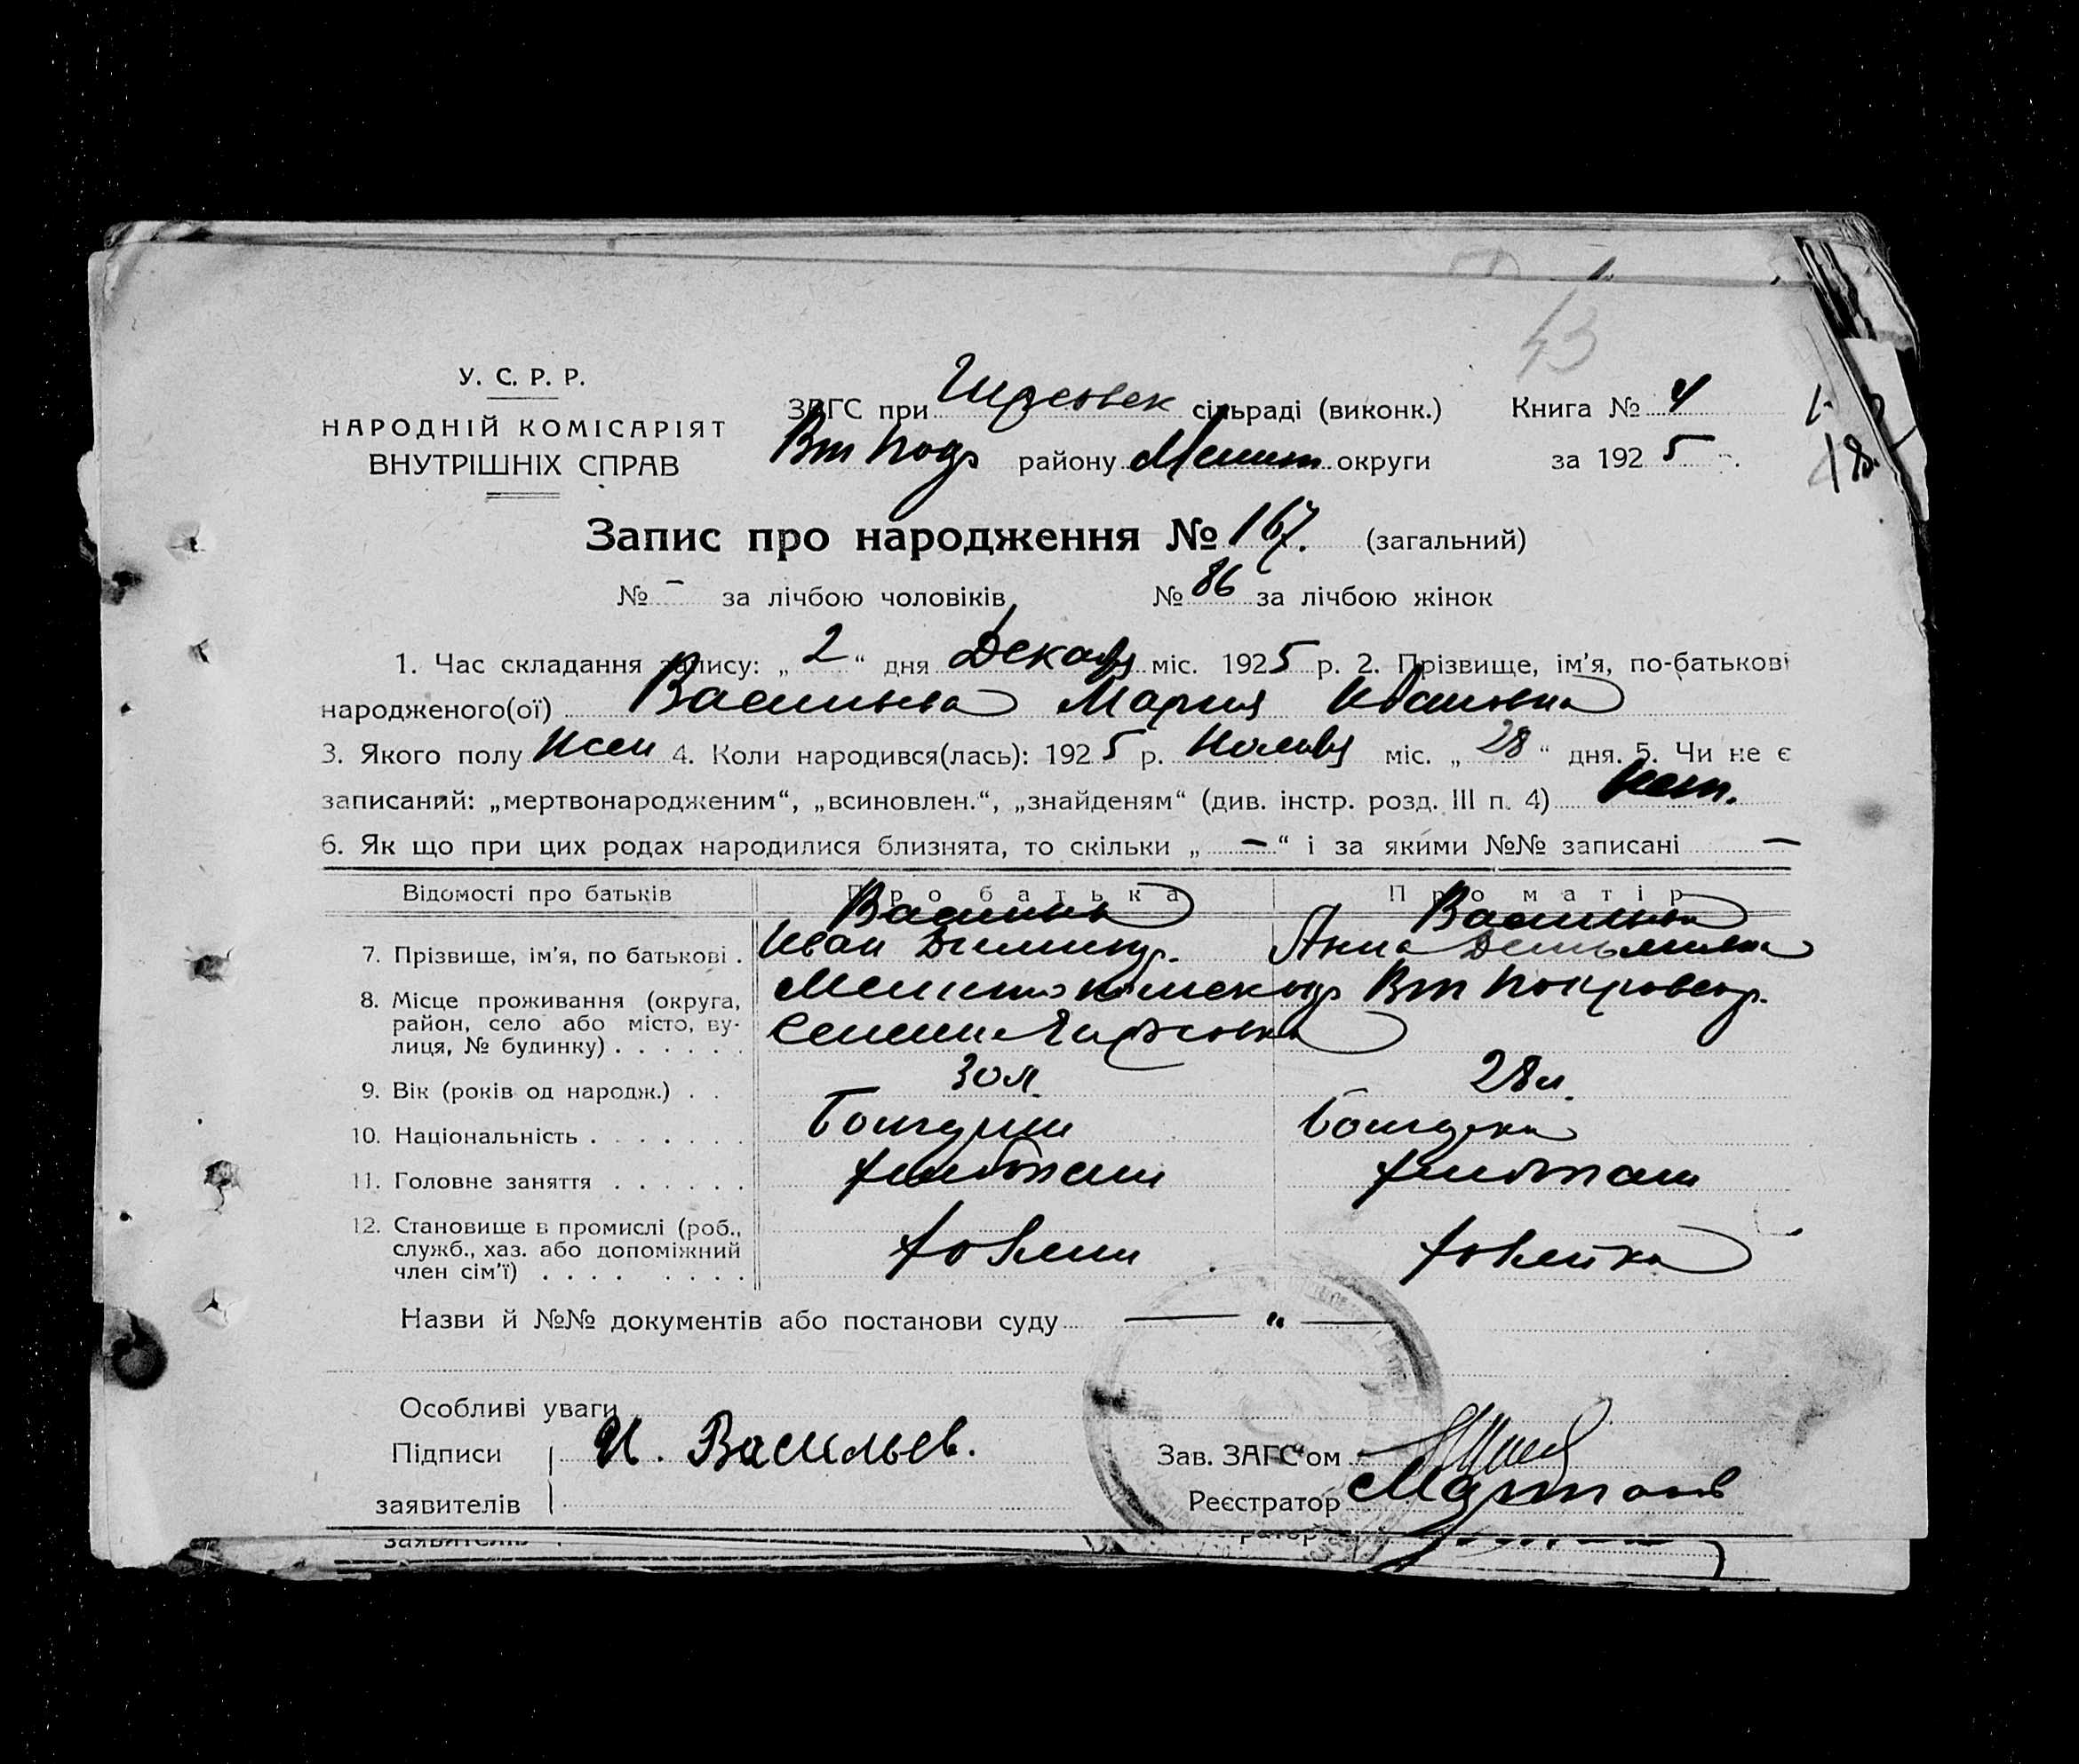 43
У. С. Р. Р.
НАРОДНІЙ КОМІСАРІЯТ
ВНУТРІШНІХ СПРАВ
ЗАГС при сільраді (виконк.) Книга № 4
району округи за 1925 р.
Запис про народження № 167. (загальний)
№ – за лічбою чоловіків, № 86 за лічбою жінок
1. Час складання запису: „ 2 “ дня Декабр міс. 1925 р. 2. Прізвище, ім'я, по-батькові
народженого(ої) Васильева Мария Ивановна
3. Якого полу Жен 4. Коли народився(лась): 1925 р. Ноябр міс. „ 28 “ дня. 5. Чи не є
записаний: „мертвонародженим“, „всиновлен.“, „знайденям“ (див. інстр. розд. III п. 4) Нет.
6. Як що при цих родах народилися близнята, то скільки „ – “ і за якими №№ записані –
Відомості про батьків Про батька Про матір
Васильев Васильева
7. Прізвище, ім'я, по батькові . Иван Димитр. Анна
8. Місце проживання (округа,
район, село або місто, ву-
лиця, № будинку) . . . . . .
9. Вік (років од народж.) . . 30 л. 28 л.
10. Національність . . . . . . . Болгарин Болгарка
11. Головне заняття . . . . . . хлебопаш хлебопаш
12. Становище в промислі (роб.,
служб., хаз. або допоміжний
член сім'ї) . . . . . . . . хозяин хозяйка
Назви й №№ документів або постанови суду — „ —
Особливі уваги
Підписи И. Васильев.
заявителів
Зав. ЗАГС'ом
Реєстратор